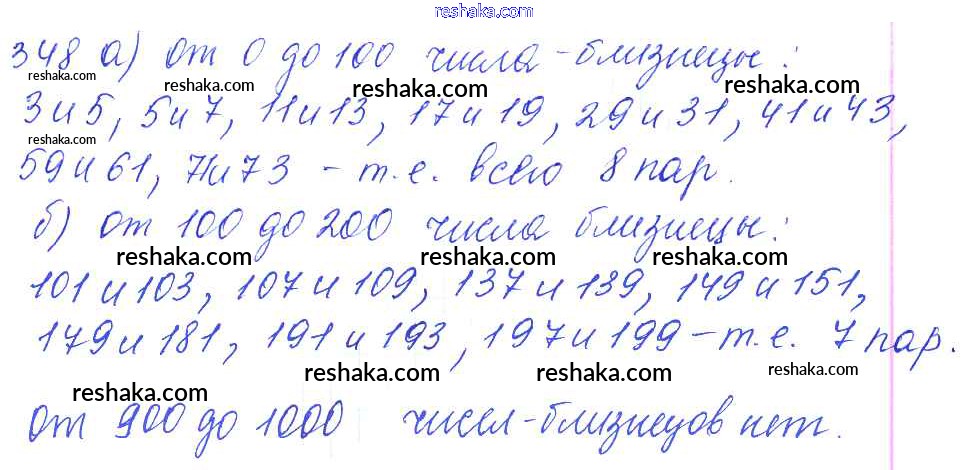 reshaka.com
348 а) от 0 до 100 числа-близнецы:
reshaka.com reshaka.com reshaka.com reshaka.com reshaka.com
3 и 5, 5 и 7, 11 и 13, 17 и 19, 29 и 31, 41 и 43,
reshaka.com
59 и 61, 71 и 73 - т.е. всего 8 пар.
б) от 100 до 200 числа близнецы:
reshaka.com reshaka.com reshaka.com reshaka.com
101 и 103, 107 и 109, 137 и 139, 149 и 151,
179 и 181, 191 и 193, 197 и 199 - т.е. 7 пар.
reshaka.com reshaka.com reshaka.com reshaka.com
от 900 до 1000 чисел-близнецов нет.
reshaka.com reshaka.com reshaka.com reshaka.com